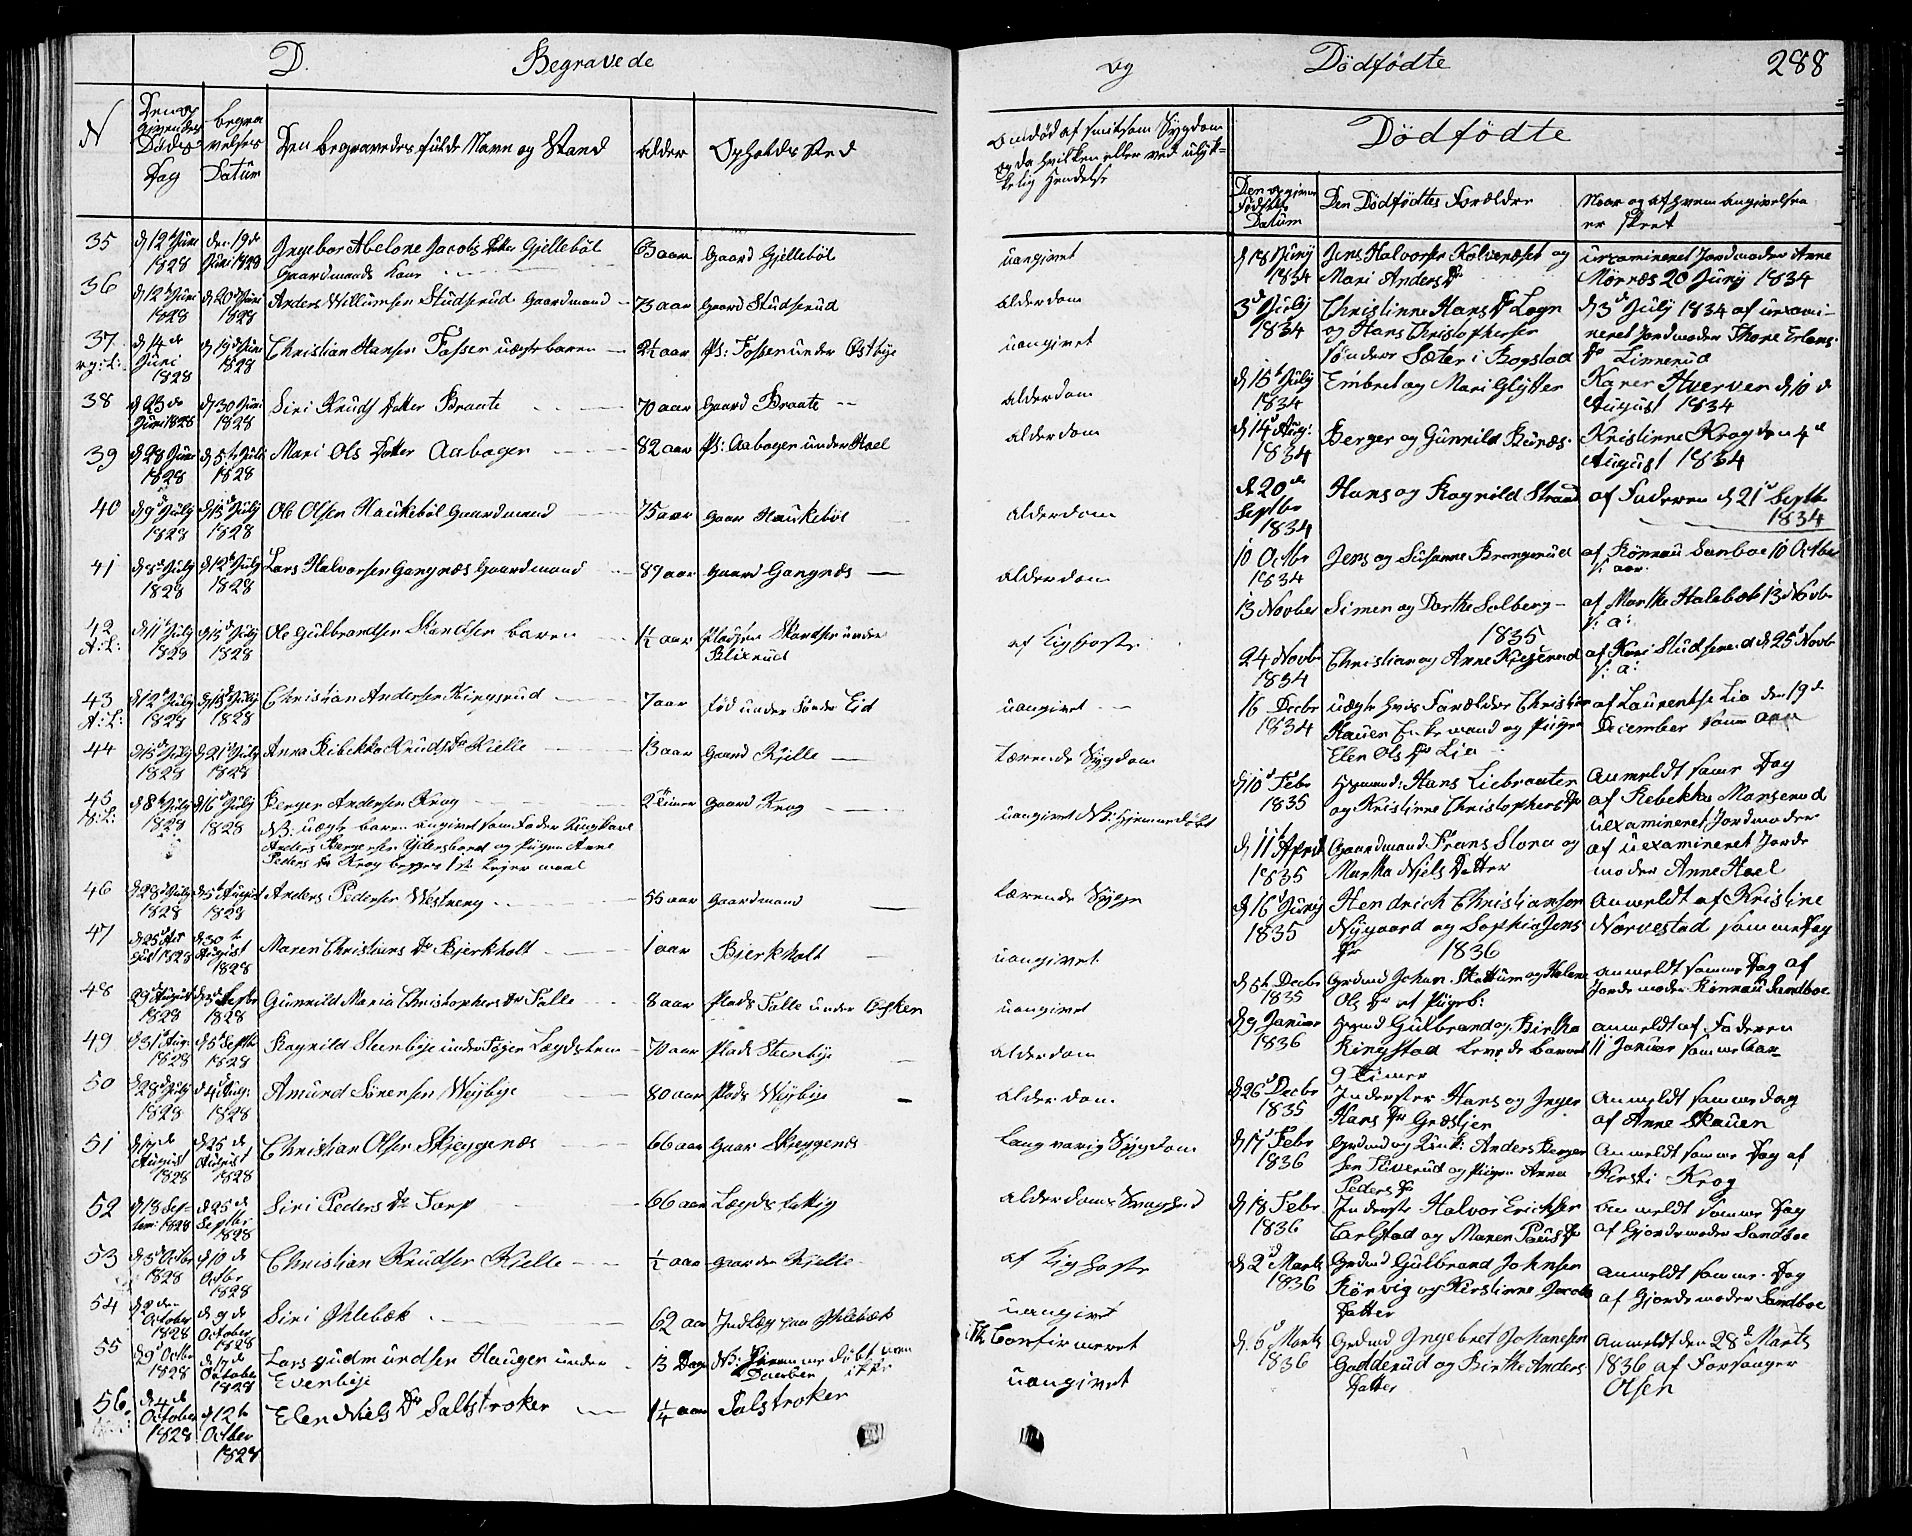 D. Begravede
og Dødfødte 288
N
Den op
givendes
Døds-
Dag
begra
velses
Datum
Den begravedes fulde Navn og Stand
Alder
Opholds Sted
Om død af smitsom Sygdom
og da hvilken eller ved ulyk-
kelig Hendelse
35 d 12te Juni 1828 den 19de Juni 1828 Ingebor Abelone Jacobs Datter Gjellebøl 63 aar Gaard Gjellebøl uangivet
Gaardmands Kone
36 d 12te Juni 1828 d 20de Juni 1828 Anders Willumsen Studserud Gaardmand 73 aar Gaard Studserud Alderdom
37 d 14de Juni 1828 d 19de Juni 1828 Christian Hansen Fosser uægte barn 2½ aar Pl: Fosser under Østbye uangivet
38 d 23de Juni 1828 d 30 Juni 1828 Siri Knuds Datter Braate 70 aar Gaard Braate Alderdom
39 d 28 Juni 1828 d 5te Juli 1828 Mari Ols Datter Aabogen 82 aar Pl: Aabogen under Hael Alderdom
40 d 9de July 1828 d 15de July 1828 Ole Olsen Haukebøl Gaardmand 75 aar Gaar Haukebøl Alderdom
41 d 8de July 1828 d 12te July 1828 Lars Halvorsen Gangnæs Gaardmand 89 aar Gaard Gangnæs Alderdom
42 d 11te July 1828 d 15d July 1828 Ole Gulbrandsen Skandsen barn 1½ aar Pladsen Skandsen under
Blixrud af Kighoste
43 d 12te July 1828 d 15d July 1828 Christian Andersen Ringsrud 7 aar fød under Søndre Eid uangivet
44 d 15d July 1828 d 21d July 1828 Anna Ribekka Knuds Dr Kjelle 13 aar Gaard Kjelle tærende Sygdom
45 d 8de July 1828 d 16d July 1828 Berger Andersen Krog 2 Timer Gaard Krog uangivet NB: hjemmedøbt
NB: uægte barn angivet som Fader Ungkarl
Anders Bergersen og Pigen Anne
Peders Dr Krog begges 1ste Lejermaal
46 d 28d July 1828 d 5te August 1828 Anders Pedersen Westreng 55 aar Gaardmand tærende Sygd
47 d 25d Au
gust 1828 d 30te August 1828 Maren Christians Dr Bjerkholt 1 aar Bjerkholt uangivet
48 d 29d August 1828 Septbr 1828 Gunnild Maria Christophers Dr Falle 8 aar Plads Falle under uangivet
49 d 31d Aug: 1828 d 5d Septbr 1828 Ragnild Steenbye under Lægdslem 70 aar Plads Steenbye Alderdom
50 d 28d July 1828 d 4d Aug: 1828 Amund Sørensen Weybye 80 aar Plads Weybye Alderdom
51 August 1828 d 25de August 1828 Christian Olsen Skjeggenæs 66 aar Gaar Skjeggenæs Langvarig Sygdom
52 d 13 Sep-
1828 d 25de Septbr 1828 Siri Peders Dr Torp 66 aar Lægds Alderdoms Svaghed
53 d 5d Octbr 1828 d 10de Octbr 1828 Christian Knudsen Kjelle ½ aar Gaarden Kjelle af Kighoste
54 October 1828 d 9de October 1828 Siri Øhlebæk 62 aar Indlæg paa Øhlebæk uangivet
55 d 9d Octbr 1828 d 17de October 1828 Lars Gudmundsen Haugen under
Evenbye 13 Dage NB: hjemmedøbt men
Daaben ikke confirmeret
56. d 4de October 1828 d 12te October 1828 Elen Niels Dr Saltstroken 1¼ aar Salstroken uangivet
Dødfødte
Den opgivne
Fødsels
Datum
Den Dødfødtes Forældre
Naar og af hvem angivelsen
er skeet
d 18 Juny 1834 Jens Halvorsen Kolvenæset og
Mari Anders Dr
uexamineret Jordmoder Anne
Mørnæs 20 Juny 1834
3de July 1834 Christinne Hans Dr Logn
og Hans Christophersen
Søndere Sæter i Bogstad
d 3de July 1834 af uexami-
neret Jordmoder Thore Erlans
Dr Linnerud
d 15de July 1834 Embret og Mari Glytter
Karen Hverven d 10de
August 1834
d 14d Aug: 1834 Berger og Gunnild Burås
Kristinne Krog den 4d
August 1834
d 20de Septbr 1834 Hans og Ragnild Strand af Faderen d 21d Septbr
1834
10 Octbr 1834 Jens og Susanne Brangerud af Rønnau Sanboe 10 Octbr
s: aar.
13 Novber Simen og Dorthe Solberg af Marthe Halebæk 13 Novbr
s: a:
1835
24 Novbr 1834 Christian og Anne af Kari Studserud d 25d Novbr
s: a:
16 Decbr 1834 uægte hvis Forældre Christian
Hauen Enkemand og Pigen
Elen Ols Dr Lia
af Laurentse Lia den 19de
December samme aar
d 10d Febr 1835 Hans Liebraaten
og Kristinne Christophers Dr
Anmeldt samme Dag
af Rebekka Mangerud
uexamineret Jordmoder
d 11te April 1835 Gaardmand Frans Slora og
Martha Niels Datter
af uexamineret Jorde
moder Anne Hael
d 16d Juny 1835 Hendrich Christiansen
Nygaard og Sophia Jens
Dr
Anmeldt af Kristine
Norvestad samme Dag
1836
d 5te Decbr 1835 Grdmd Johan Skattum og Helene
Ols Dr
Anmeldt samme Dag af
Jordemoder Rønnau Sandboe
d 9 Januar 1836 Gulbrand og Birtha
Ringstad levede barnet
9 Timer
Anmeldt af Faderen
11 Januar samme Aar
d 26d Decbr 1835 Inderster Hans og Inger
Hans Dr Græsljer
Anmeldt samme dag
af Anne Skauen
d 17d Febr 1836 Grdmd og Enk: Anders Berger
sen Tuverud og Pigen Anna
Peders Dr
Anmeldt samme Dag af
Kirsti Krog
d 18 Febr 1836 Inderste Halvor Ericksen
Carlstad og Maren Pauls Dr
Anmeldt samme Dag
af Gjordemoder Sandboe
d 2d Marts 1836 Grdmd Gulbrand Johnsen
Rørvig og Kerstinne Jacobs
Datter
Anmeldt samme Dag
af Gjordemoder Sandboe
d. 6d Marts 1836 Grdmd Ingebret Johanesen
Gudderud og Birthe Anders
Datter
Anmeldt den 28de Marts
1836 af Forsanger
Olsen